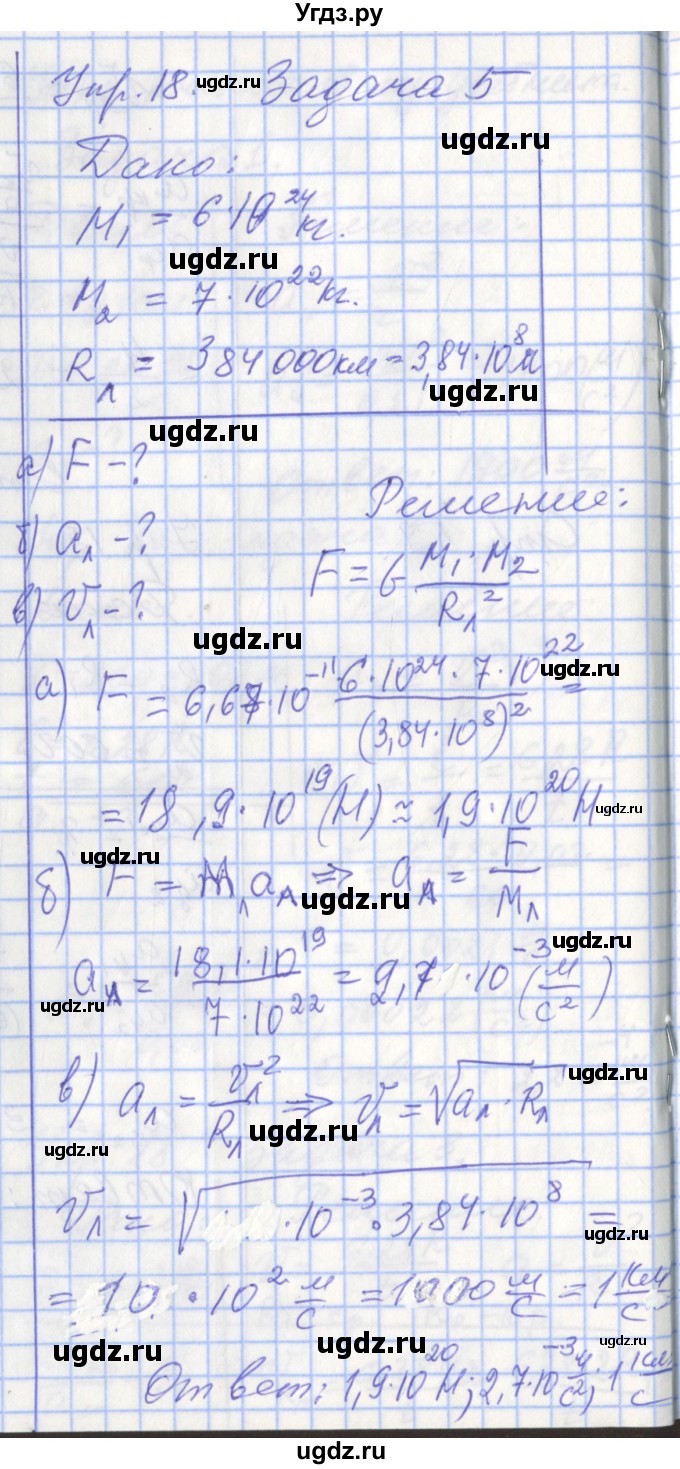 Угдз.ру
Упр. 18. Задача 5
ugdz.ru
ugdz.ru
Дано:
M₁ = 6·10²⁴ кг.
ugdz.ru
M₂ = 7·10²² кг.
Rл = 384 000 км = 3,84·10⁸ м
ugdz.ru
ugdz.ru
а) F - ?
Решение:
б) aл - ?
F = G M₁·M₂ / Rл²
в) vл - ?
ugdz.ru
ugdz.ru
а) F = 6,67·10⁻¹¹ 6·10²⁴·7·10²² / (3,84·10⁸)² =
= 18,9·10¹⁹ (Н) ≈ 1,9·10²⁰ Н
ugdz.ru
ugdz.ru
б) F = Mл aл ⇒ aл = F / Mл
ugdz.ru
aл = 18,1·10¹⁹ / 7·10²² = 2,7·10⁻³ (м/с²)
ugdz.ru
ugdz.ru
в) aл = vл² / Rл ⇒ vл = √aл·Rл
ugdz.ru
ugdz.ru
vл = √ ·10⁻³·3,84·10⁸ =
ugdz.ru
= 10·10² м/с = 1000 м/с = 1 км/с
ugdz.ru
ugdz.ru
ugdz.ru
Ответ: 1,9·10²⁰ Н; 2,7·10⁻³ м/с²; 1 км/с
ugdz.ru